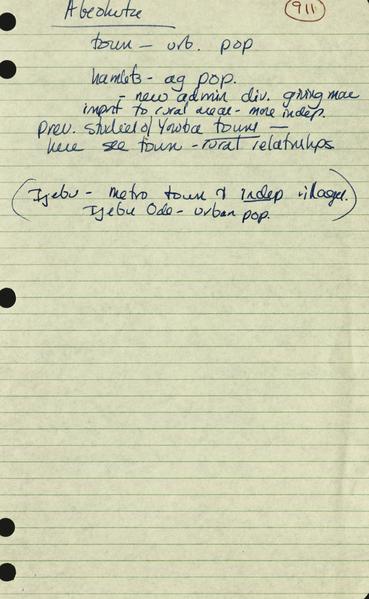 Abeokuta
911
town - urb. pop
hamlets - ag pop.
- new admin div. giving more
import to rural areas - more indep.
Prev. studies of Yoruba towns -
here see town - rural relatnships
(Ijebu - metro town & indep villages.
Ijebu Ode - urban pop.)